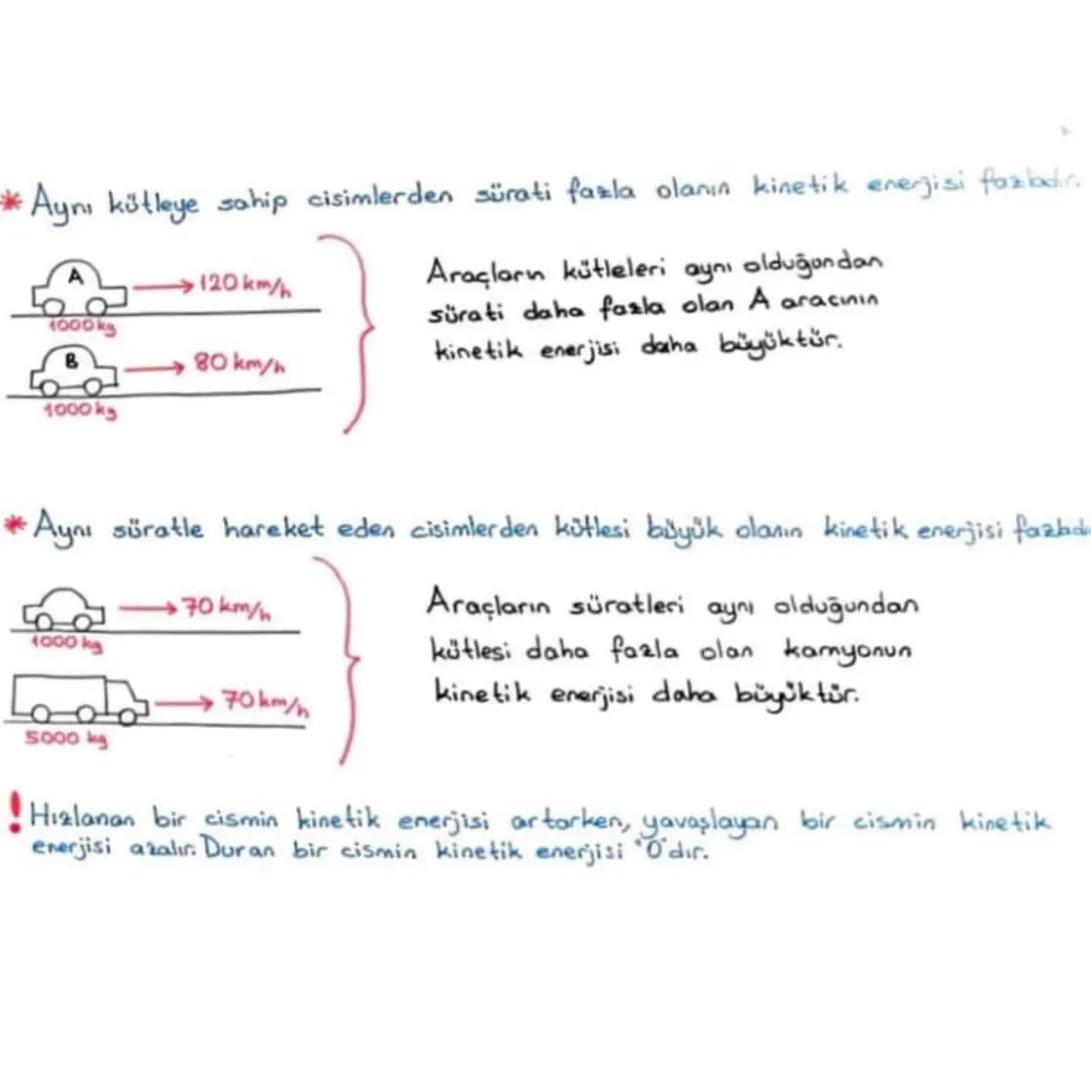 * Aynı kütleye sahip cisimlerden sürati fazla olanın kinetik enerjisi fazladır.
A
120 km/h
1000 kg
B
80 km/h
1000 kg
Araçların kütleleri aynı olduğundan
sürati daha fazla olan A aracının
kinetik enerjisi daha büyüktür.
* Aynı süratle hareket eden cisimlerden kütlesi büyük olanın kinetik enerjisi fazladı
70 km/h
1000 kg
70 km/h
5000 kg
Araçların süratleri aynı olduğundan
kütlesi daha fazla olan kamyonun
kinetik enerjisi daha büyüktür.
! Hızlanan bir cismin kinetik enerjisi artarken, yavaşlayan bir cismin kinetik
enerjisi azalır. Duran bir cismin kinetik enerjisi "0"dır.